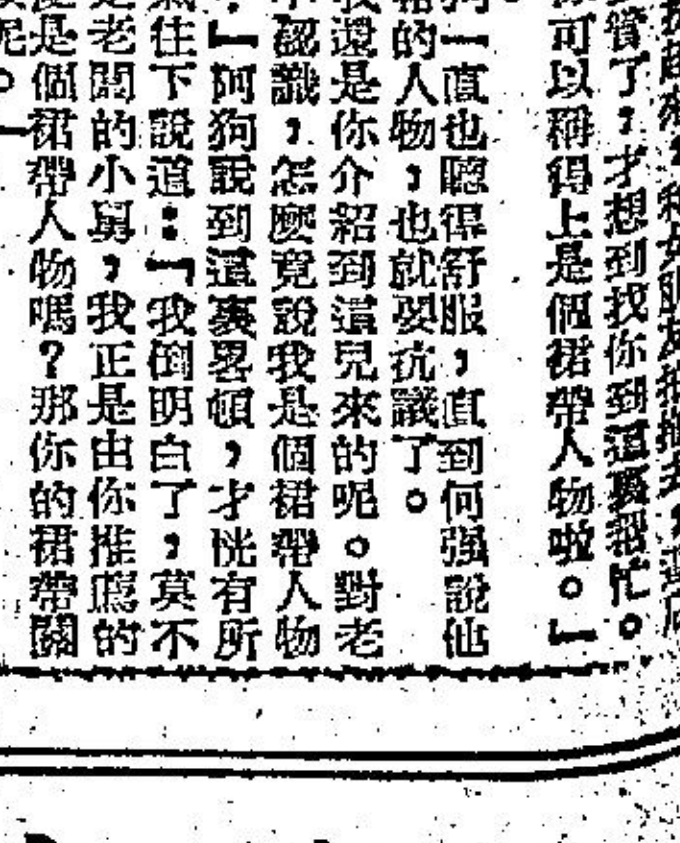 起來，和女朋友拍拖去，這店
管了，才想到找你到這裏幫忙。
可以稱得上是個裙帶人物啦。」
狗一直也聽得舒服，直到何强說他
的人物，也就要抗議了。
我還是你介紹到這兒來的呢。對老
不認識，怎麽竟說我是個裙帶人物
」阿狗說到這裏畧頓，才恍有所
住下說道：「我倒明白了，莫不
是老闆的小舅，我正是由你推薦的
是個裙帶人物嗎？那你的裙帶關
呢。」